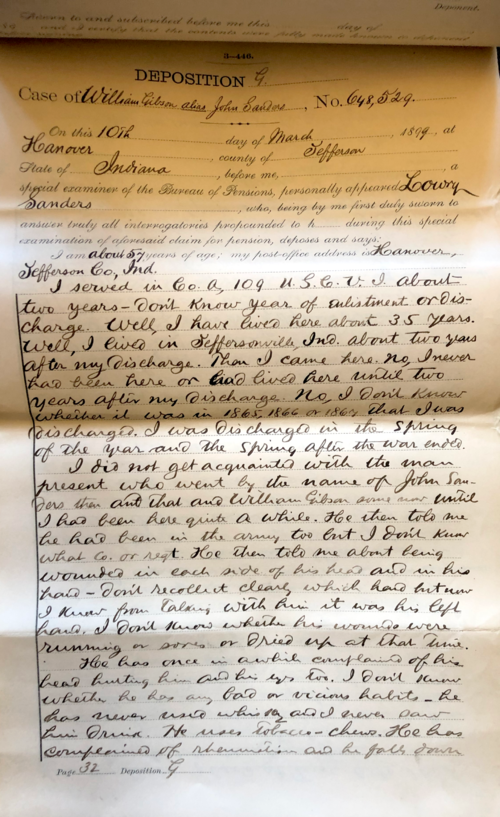 Deponent.
Sworn to and subscribed before me this day of
and I certify that the contents were fully made known to deponent
3—446.
DEPOSITION G.
Case of William Gibson alias John Sanders, No. 648,529.
On this 10th day of March, 1899, at
Hanover, county of Jefferson
State of Indiana, before me, a
special examiner of the Bureau of Pensions, personally appeared Lowry
Sanders, who, being by me first duly sworn to
answer truly all interrogatories propounded to h during this special
examination of aforesaid claim for pension, deposes and says:
I am about 57 years of age; my post-office address is Hanover,
Jefferson Co, Ind.
I served in Co. A, 109 U.S.C.V.I. about
two years – don't know year of enlistment or dis-
charge. Well, I have lived here about 35 years.
Well, I lived in Jeffersonville, Ind. about two years
after my discharge. Then I came here. No, I never
had been here or had lived here until two
years after my discharge. No, I don't know
whether it was in 1865, 1866 or 1867 that I was
discharged. I was discharged in the Spring
of the year and the Spring after the war ended.
I did not get acquainted with the man
present who went by the name of John San-
ders then and that and William Gibson some now until
I had been here quite a while. He then told me
he had been in the army too but I don't know
what Co. or regt. He then told me about being
wounded in each side of his head and in his
hand – don't recollect clearly which hand but now
I know from talking with him it was his left
hand. I don't know whether his wounds were
running or sores or dried up at that time.
He has once in a while complained of his
head hurting him and his eyes too. I don't know
whether he has any bad or vicious habits – he
has never used whisky and I never saw
him drink. He uses tobacco – chews. He has
complained of rheumatism and he falls down
Page 32 Deposition G